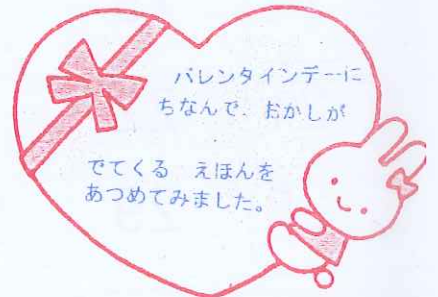 バレンタインデーに
ちなんで、おかしが
でてくる　えほんを
あつめてみました。